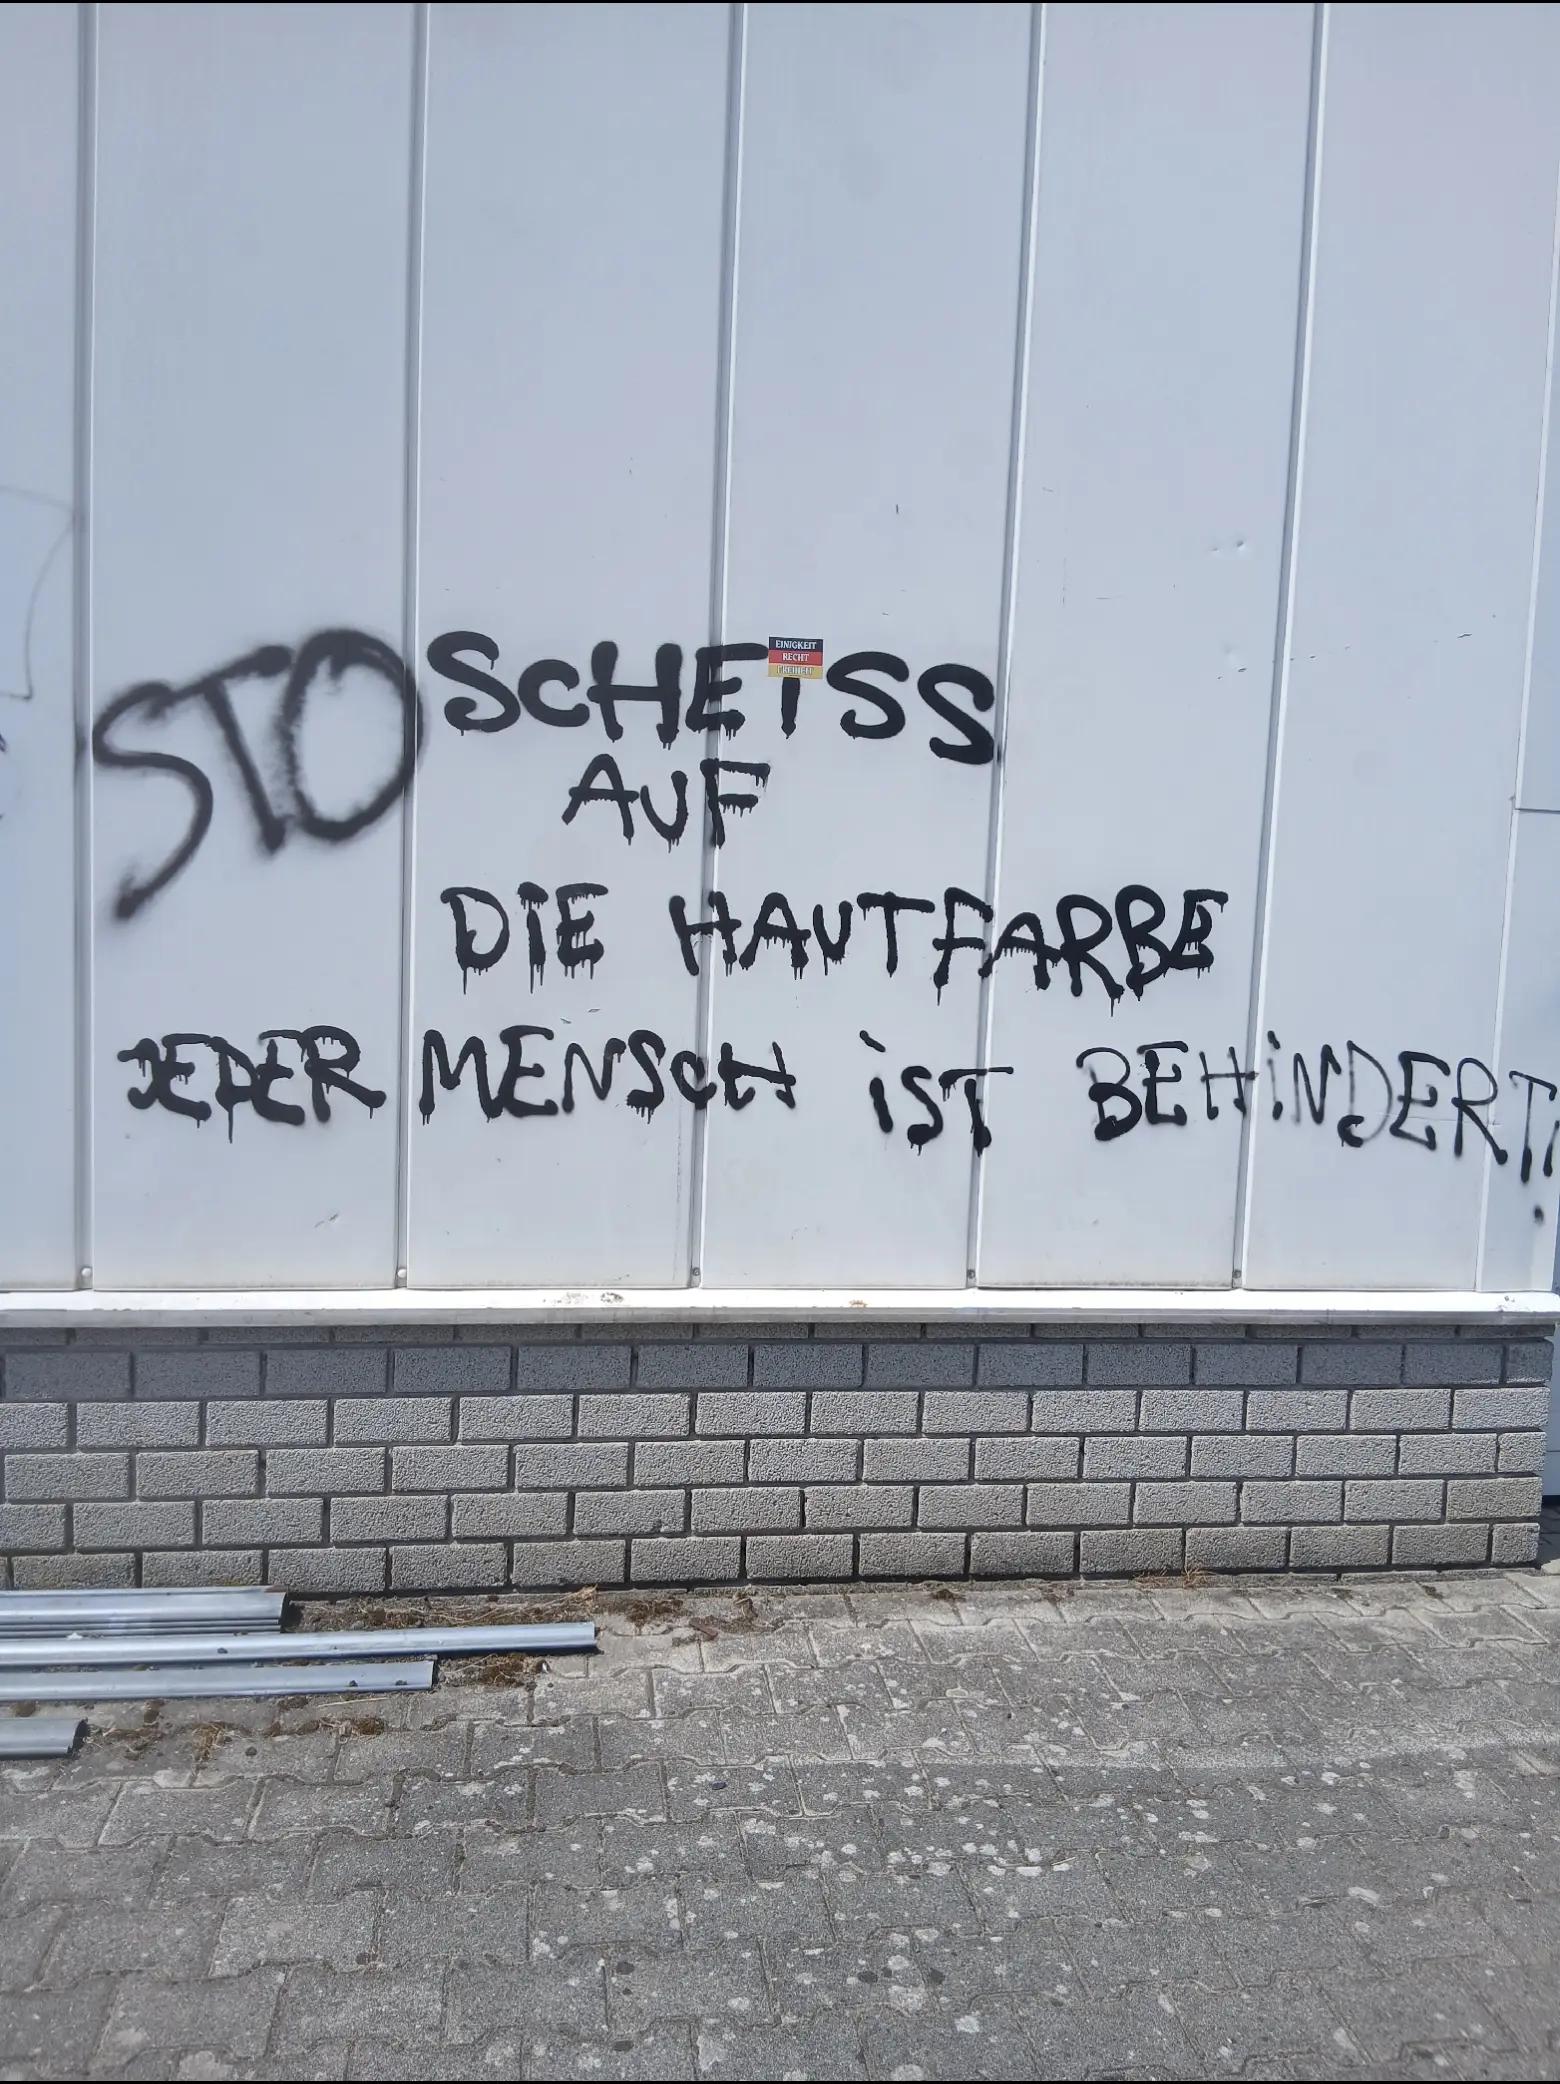 STO
SCHEISS
EINIGKEIT
RECHT
FREIHEIT
AUF
DIE HAUTFARBE
JEDER MENSCH iST BEHiNDERT!